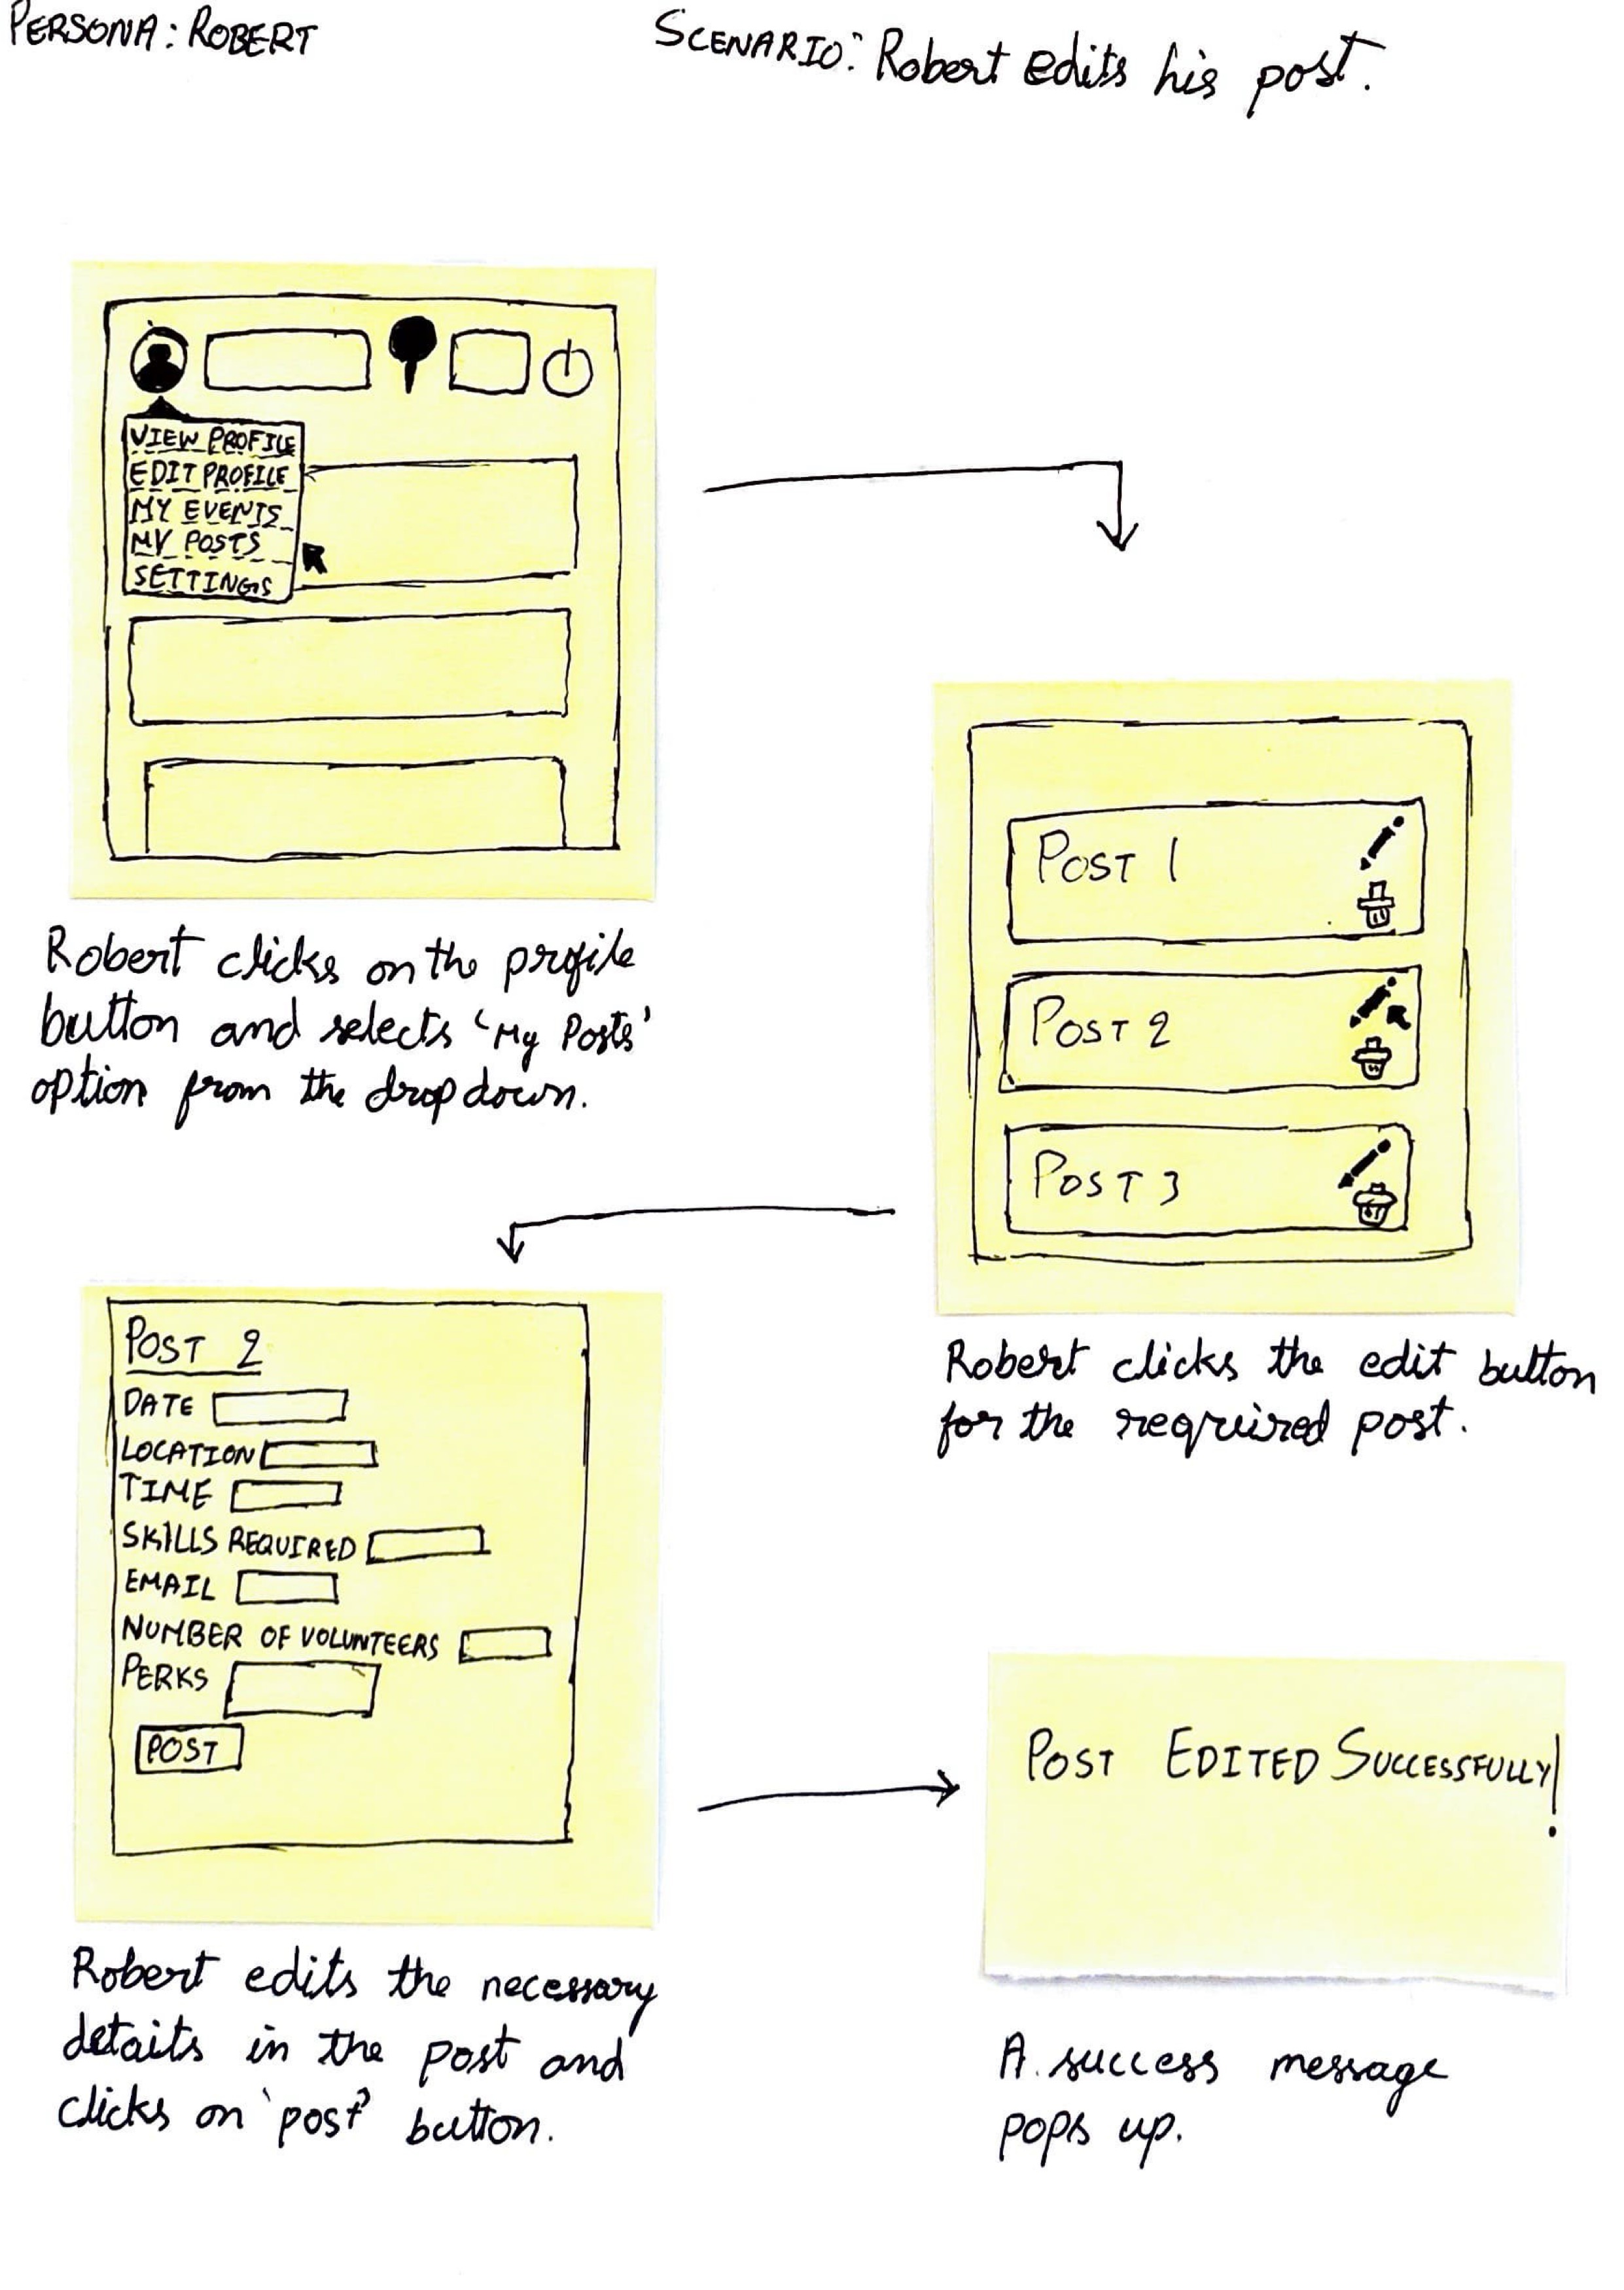 PERSONA: ROBERT
SCENARIO: Robert edits his post.
VIEW PROFILE
EDIT PROFILE
MY EVENTS
MY POSTS
SETTINGS
Robert clicks on the profile
button and selects 'My Posts'
option from the dropdown.
POST 1
POST 2
POST 3
Robert clicks the edit button
for the required post.
POST 2
DATE
LOCATION
TIME
SKILLS REQUIRED
EMAIL
NUMBER OF VOLUNTEERS
PERKS
POST
Robert edits the necessary
details in the post and
clicks on 'post' button.
POST EDITED SUCCESSFULLY!
A success message
pops up.